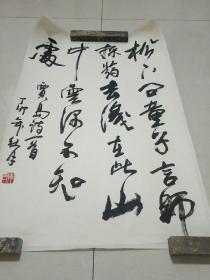 松下問童子言師
採藥去只在此山
中雲深不知
處
賈島詩一首
丁卯年秋月